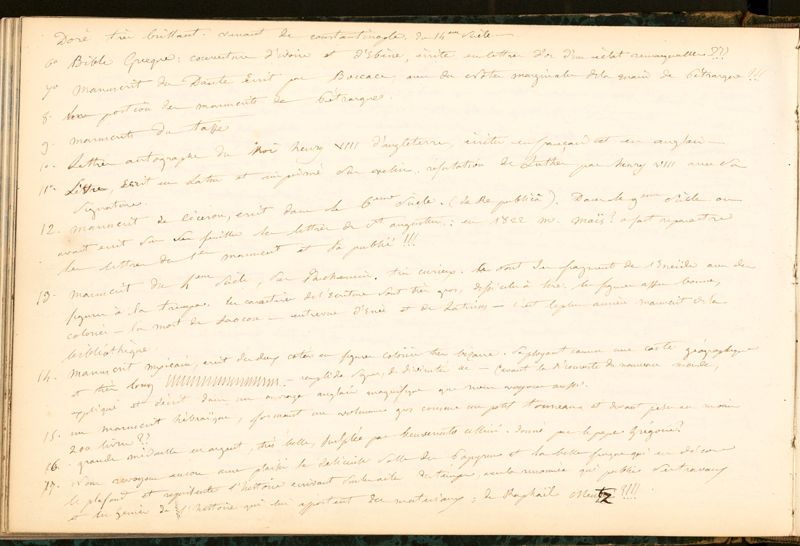 Doré très brillant. venant de constantinople, du 14eme siècle —
6o Bible Grecque: couverture d'ivoire et d'Ebène, écrite en lettres d'or d'un éclat remarquable ???
7o manuscrit du Dante écrit par Boccace, avec des notes marginales de la main de Pétrarque !!!
8. portion des manuscrits de Pétrarque.
9. manuscrits du tasse
10. Lettres autographes du Roi henry VIII d'angleterre, écrites en français et en anglais —
11o Livre, écrit en Latin et imprimé sur, réfutation de Luther par henry VIII avec sa
Signature.
12. manuscrit de Ciceron, écrit dans le 6eme siècle. (de Republica). Dans le 9eme siècle on
avait écrit sur les feuilles les lettres de St augustin: en 1822 m. Maïs! a fait reparaître
les lettres du 1er manuscrit et l'a publié !!!
13. manuscrit du 4eme siècle, sur Parchemin. très curieux. Ce sont des fragments de l'Enéide avec des
figures à la. Les caractères de l'Ecriture sont très gros, difficiles à lire. les figures assez bonnes,
coloriées — la mort de Laocoon — entrevue d'Enée et de Latinus — c'est le plus ancien manuscrit de la
bibliothèque.
14. manuscrit mexicain, écrit des deux cotés en figures coloriées très bizarres. se déployant comme une carte géographique
et très long — rempli de signes, de divinités &c — avant la découverte du nouveau monde,
expliqué et décrit dans un ouvrage anglais magnifique que nous voyons aussi.
15. un manuscrit hébraïque, formant un volume gros comme un petit tonneau et devant peser au moins
200 livres ??
16. grande médaille en argent, très belle, sculptée par benvenuto cellini. donné par le pape Grégoire?
17. nous revoyons encore avec plaisir la délicieuse salle des Papyrus et la belle fresque qui en décore
le plafond et représente l'histoire écrivant sur les ailes du temps, avec la renommée qui publie ses travaux
et les génies de l'histoire qui lui apportent des matériaux; de Raphaël Mentz ?!!!